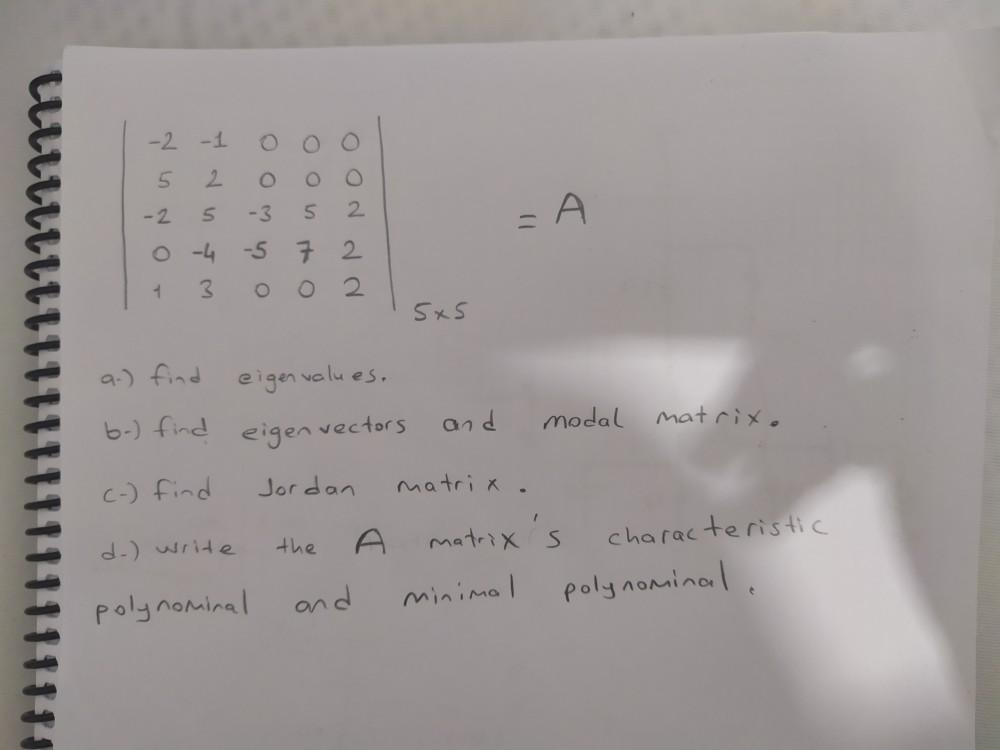 -2 -1 0 0 0
5 2 0 0 0
-2 5 -3 5 2 = A
0 -4 -5 7 2
1 3 0 0 2
5x5
a-) find eigenvalues.
b-) find eigenvectors and modal matrix.
c-) find Jordan matrix.
d-) write the A matrix's characteristic
polynominal and minimal polynominal.